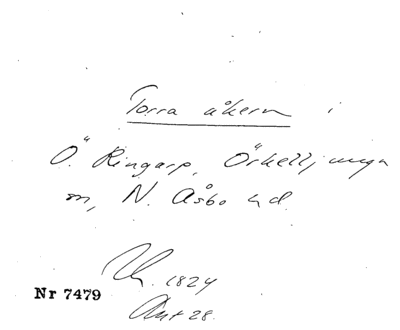 Torra åkern i
Ö. Ringarp, Örkelljunga
sn, N. Åsbo hd.
1824
Nr 7479
Akt 28.